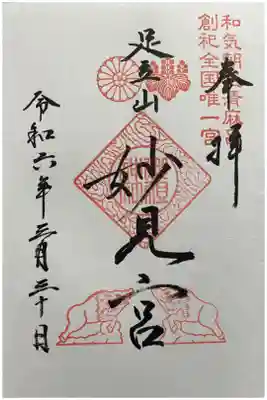 奉拝
和気朝臣清麻呂
創祀全国唯一宮
足立山
妙見宮
令和六年三月三十日